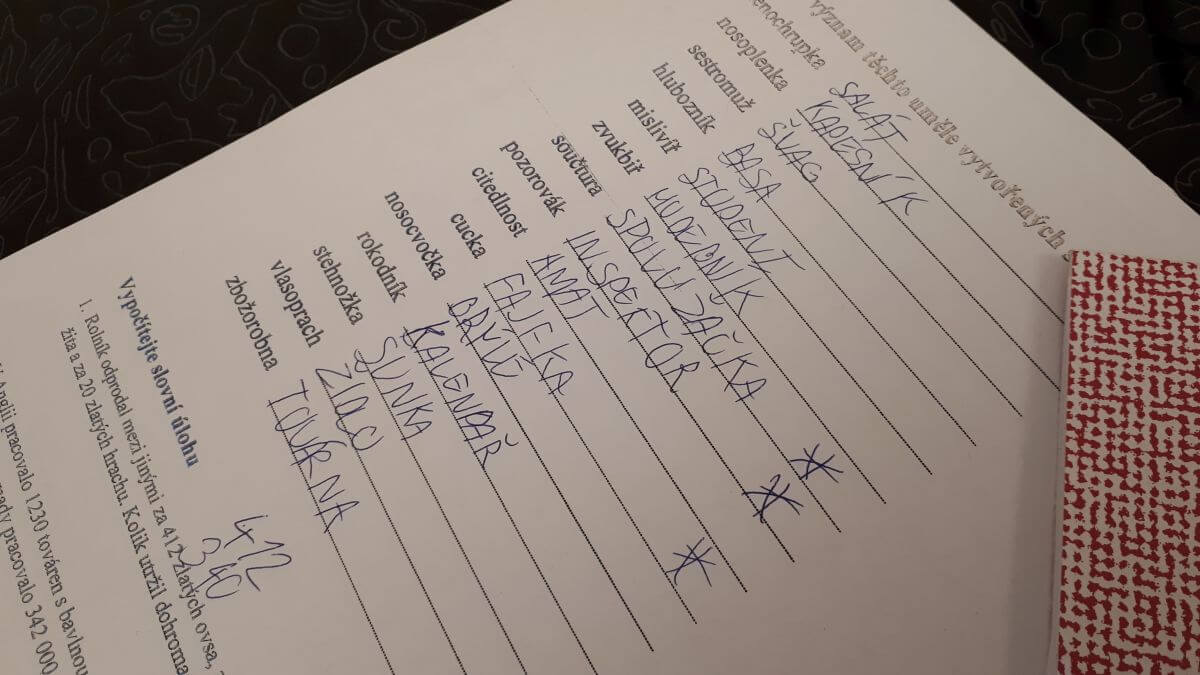 význam těchto uměle vytvořených
enochrupka SALÁT
nosoplenka KAPESNÍK
sestromuž ŠVAG
hlubozník BASA
mislivíř STUDENT
zvukbiř HUDEBNÍK
součtura SPOLUŽAČKA
pozorovák INSPEKTOR
citedlnost AMAT
cucka FAJFKA
nosocvočka BRÝLE
rokodník KALENDAŘ
stehnožka ŠUNKA
vlasoprach
zbožorobna TOVÁRNA
Vypočítejte slovní úlohu
1. Rolník odprodal mezi jinými za 412 zlatých ovsa,
žita a za 20 zlatých hrachu. Kolik utržil dohroma
412
340
Anglii pracovalo 1230 továren s bavlnou
pracovalo 342 000